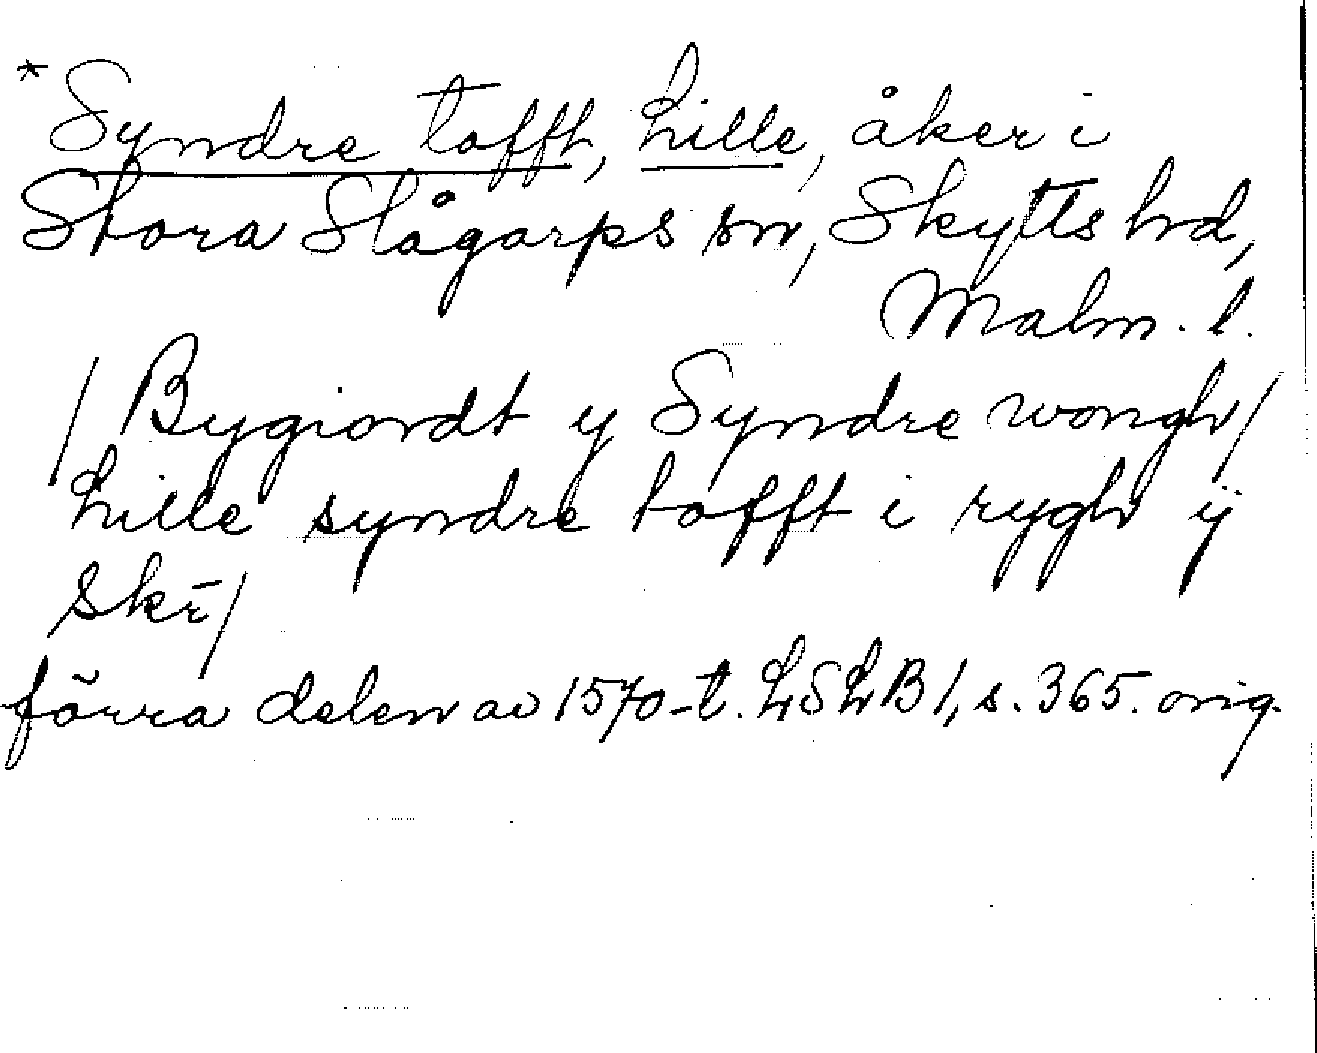 * Syndre tofft, Lille, åker i
Stora Slågarps sn, Skytts hd,
Malm. l.
/ Bygiordt y Syndre wongh /
Lille syndre tofft i rygh ÿ
skr̄ /
förra delen av 1570-t. LSLB 1, s. 365. orig.